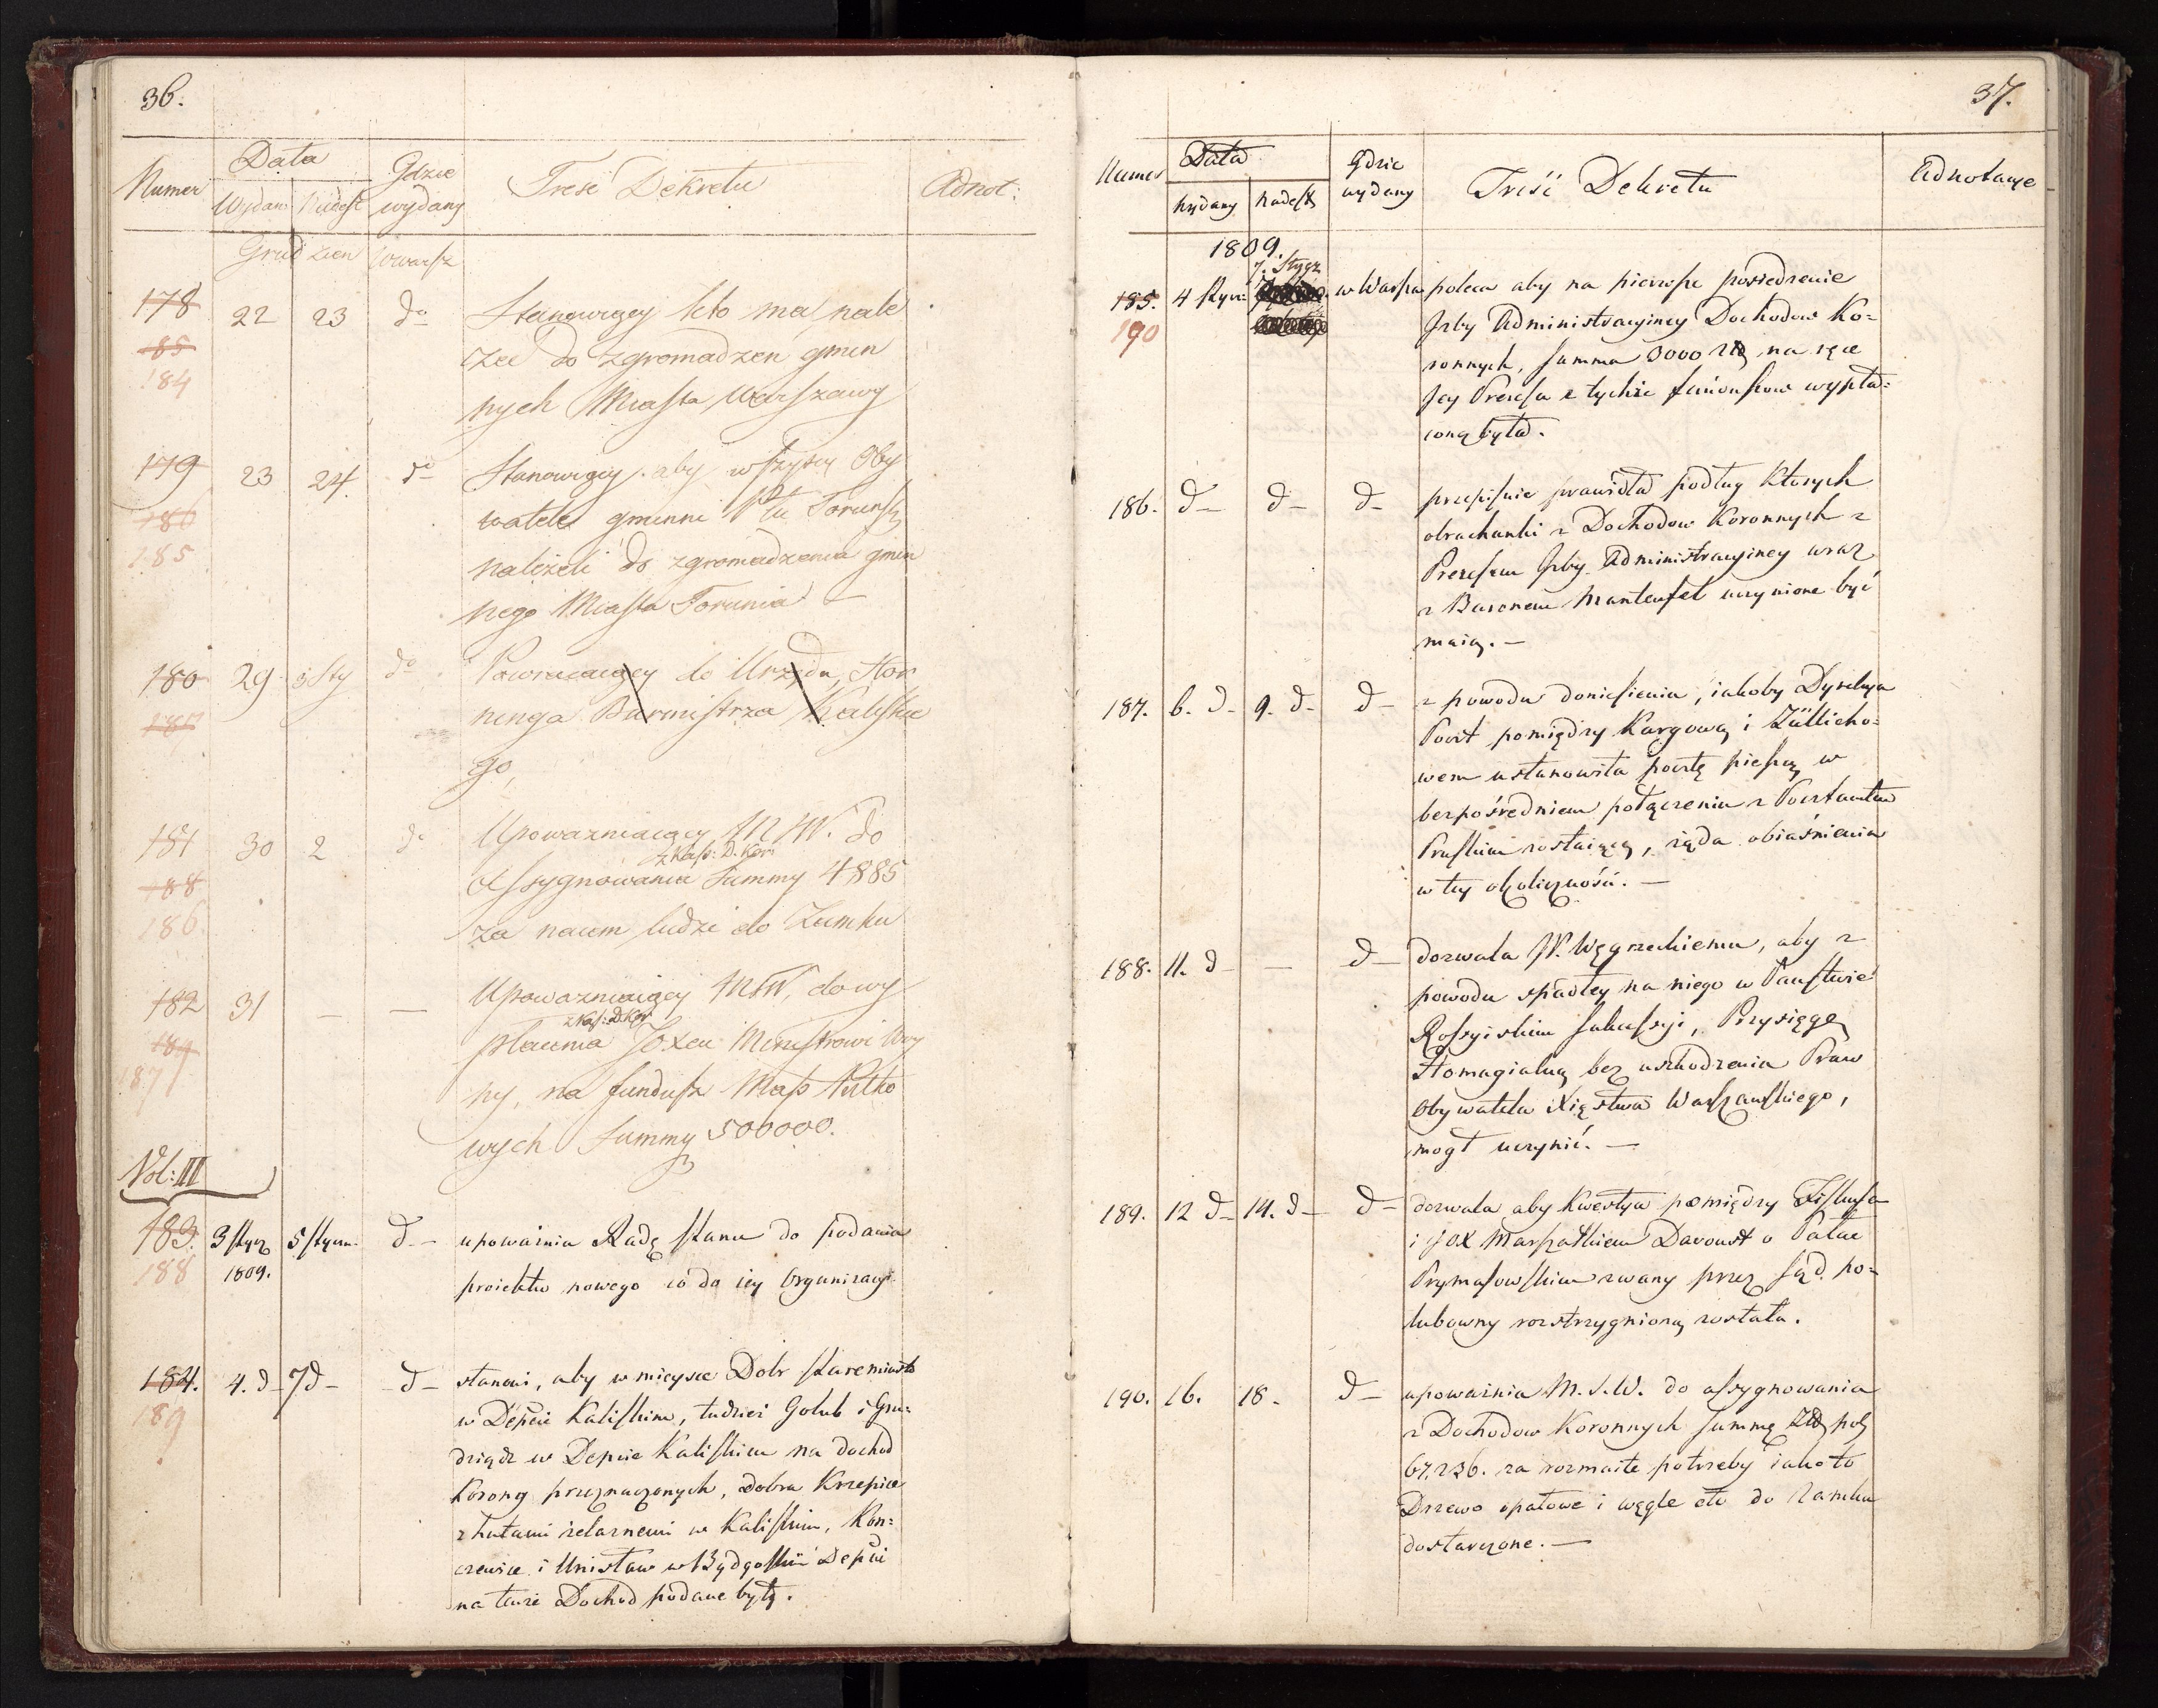 36.
Numer Data Gdzie wydany Treść Dekretu Adnot:
Wydan Nadesł
Grudzień w Warsz
178 22 23 do Stanowiący kto ma nale
85 żeć do zgromadzeń gmin
184 nych Miasta Warszawy
179 23 24 do Stanowiący aby wszyscy Oby
186 watele gminni Ptu Toruńsk
185 należeli do zgromadzenia gmin
nego Miasta Torunia —
180 29 3 Sty do Powracaiący do Urzędu, Hor
187 nunga Burmistrza Kaliskie
go,
181 30 2 do Upoważniaiący MSW. do
z Kass: D. Kor:
188 Assygnowania Summy 4885
186. za naiem ludzi do Zamku
182 31 — — Upoważniaiący MSW, do wy
z Kas: D. Kor
189 płacenia JOXcu Ministrowi Woy
187 ny, na fundusz Mass Pułko
wych Summy 500000.
Vol: III
183. 3 Stycz 5 Styczn. d — upoważnia Radę Stanu do podania
188 1809. proiektu nowego co do iey Organizacyi.
184. 4. d — 7 d — d — stanowi, aby w mieysce Dobr Staremiasto
189 w Depcie Kaliskim, tudzież Golub i Gru=
dziądz w Depcie Kaliskim na dochod
Korony przeznaczonych, dobra Krzepice
z hutami żelaznemi w Kaliskim, Kon=
czewice i Unisław w Bydgoskim Depcie
na tenże Dochod podane były.
37.
Numer Data Gdzie wydany Treść Dekretu Adnotacye
wydany nadesz
1809.
7. Stycz
185. 4 Stycz: w Warsza poleca aby na pierwsze posiedzenie
190 Izby Administracyiney Dochodow Ko=
ronnych, summa 3000 zł na ręce
Jey Prezesa z tychże funduszow wypła=
coną była.
186. d — d — d — przepisuie prawidła podług ktorych
obrachunki z Dochodow Koronnych z
Prezesem Izby Administracyiney wraz
z Baronem Manteufel uczynione być
maią. —
187. 6. d — 9. d — d — z powodu doniesienia, iakoby Dyrekcya
Poczt pomiędzy Kargową i Züllicho=
wem ustanowiła pocztę pieszą w
bezpośredniem połączeniu z Pocztamtem
Pruskim zostaiącą, żąda obiaśnienia
w tey okoliczności. —
188. 11. d — — d — dozwala W. Węgrzeckiemu, aby z
powodu spadłey na niego w Państwie
Rossyiskim sukcessyi, Przysięgę
Homagialną bez uszkodzenia Praw
Obywatela Xięstwa Warszawskiego,
mogł uczynić. —
189. 12 d — 14. d — d — dozwala aby kwestya pomiędzy Fiskusa
i JOX Marszałkiem Davoust o Pałac
Prymasowskim zwany przez sąd po=
lubowny rozstrzygnioną została.
190. 16. 18. d — upoważnia M. S. W. do assygnowania
z Dochodow Koronnych summę Zł pol
67,236. za rozmaite potrzeby iako to
Drzewo opałowe i węgle etc do Zamku
dostarczone. —